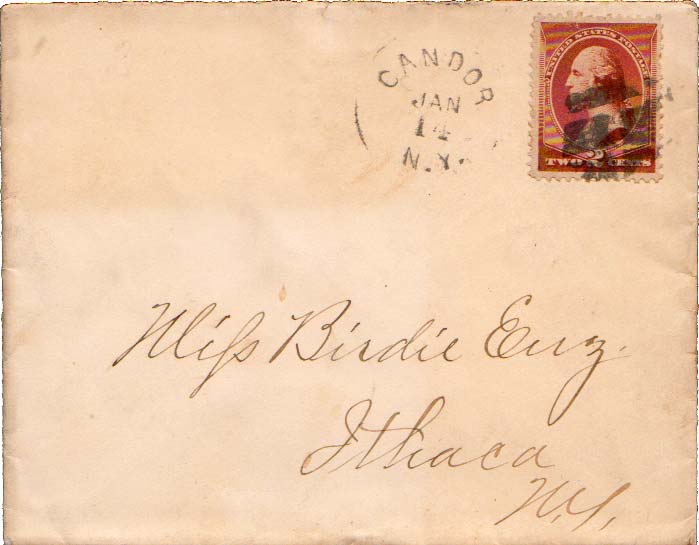 CANDOR
JAN
14
N.Y.
UNITED STATES POSTAGE
2
TWO CENTS
Miss Birdie Enz.
Ithaca
N.Y.